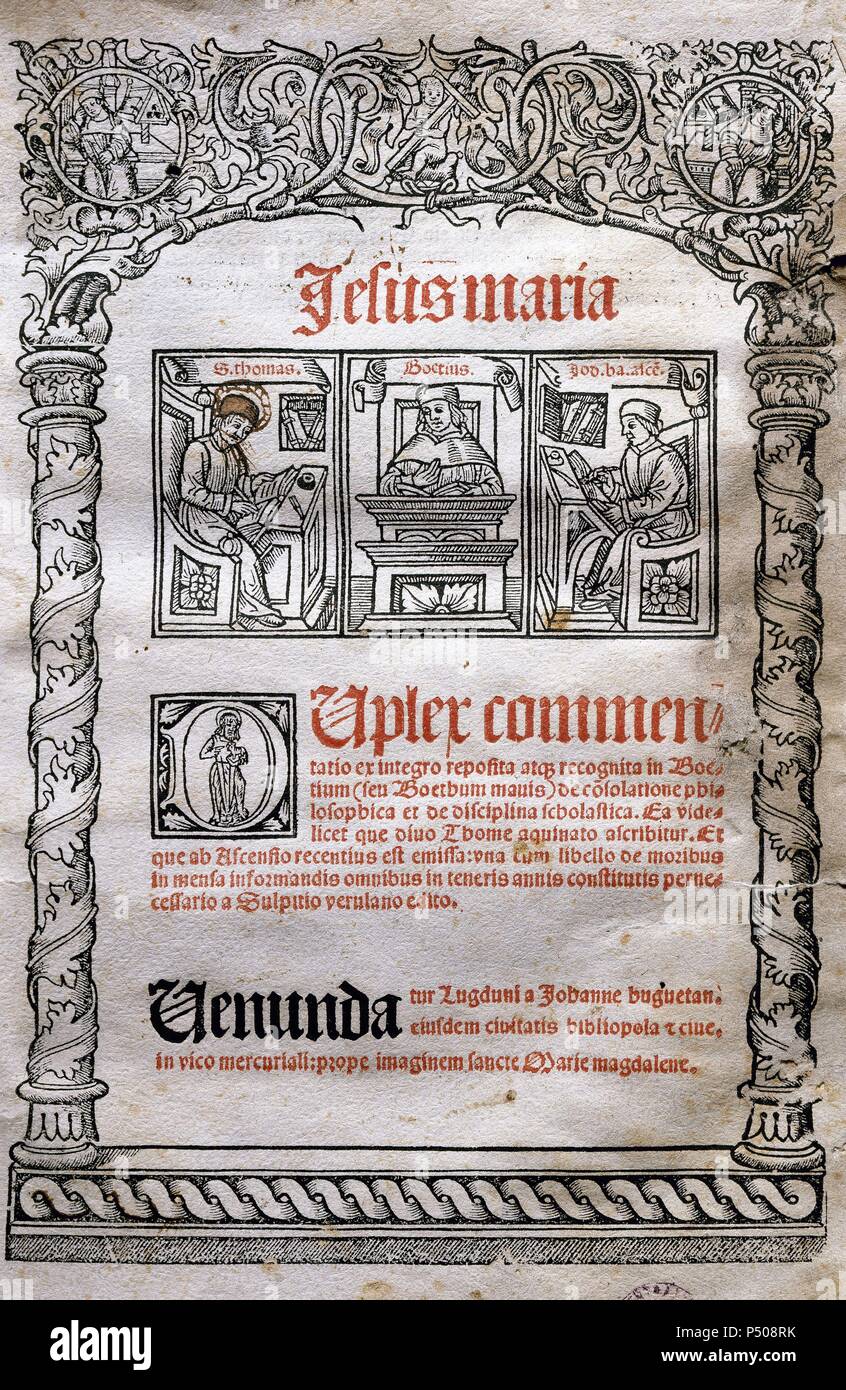 Jesus maria
S. thomas. Boetius. Jod. ba. ascē.
DUplex commen-
tatio ex integro reposita atq₃ recognita in Boe-
tium (seu Boethum mauis) de cōsolatione phi-
losophica et de disciplina scholastica. Ea vide-
licet que diuo Thome aquinato ascribitur. Et
que ab Ascensio recentius est emissa: vna cum libello de moribus
in mensa informandis omnibus in teneris annis constitutis perne-
cessario a Sulpitio verulano edito.
Uenunda tur Lugduni a Johanne huguetan:
eiusdem ciuitatis bibliopola ⁊ ciue.
in vico mercuriali: prope imaginem sancte Marie magdalene.
alamy
Image ID: P508RK
www.alamy.com